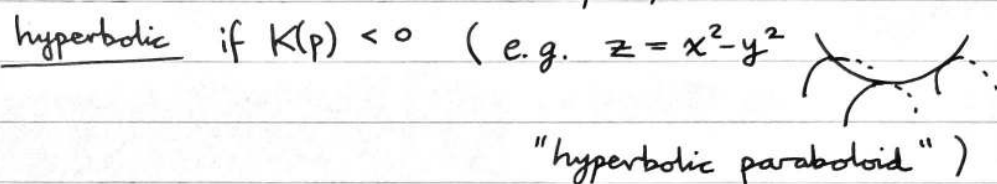 hyperbolic if K(p) < 0 ( e.g. z = x²-y²
"hyperbolic paraboloid" )